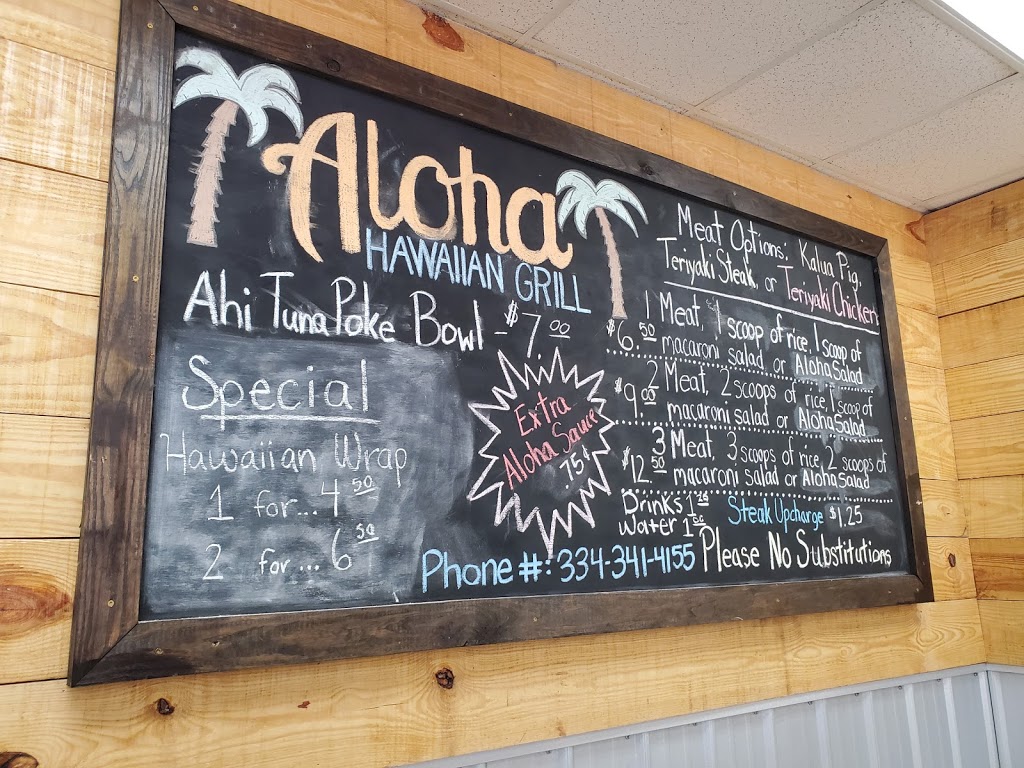 Aloha
HAWAIIAN GRILL
Ahi Tuna Poke Bowl - $7.00
Special
Hawaiian Wrap
1 for... 4.50
2 for... 6.50
Extra
Aloha Sauce
.75¢
Meat Options: Kalua Pig,
Teriyaki Steak, or Teriyaki Chicken
1 Meat, 1 scoop of rice, 1 scoop of
$6.50 macaroni salad or Aloha Salad
2 Meat, 2 scoops of rice, 1 scoop of
$9.00 macaroni salad or Aloha Salad
3 Meat, 3 scoops of rice, 2 scoops of
$12.50 macaroni salad or Aloha Salad
Drinks
Water 1.50
Steak Upcharge $1.25
Phone #: 334-341-4155
Please No Substitutions